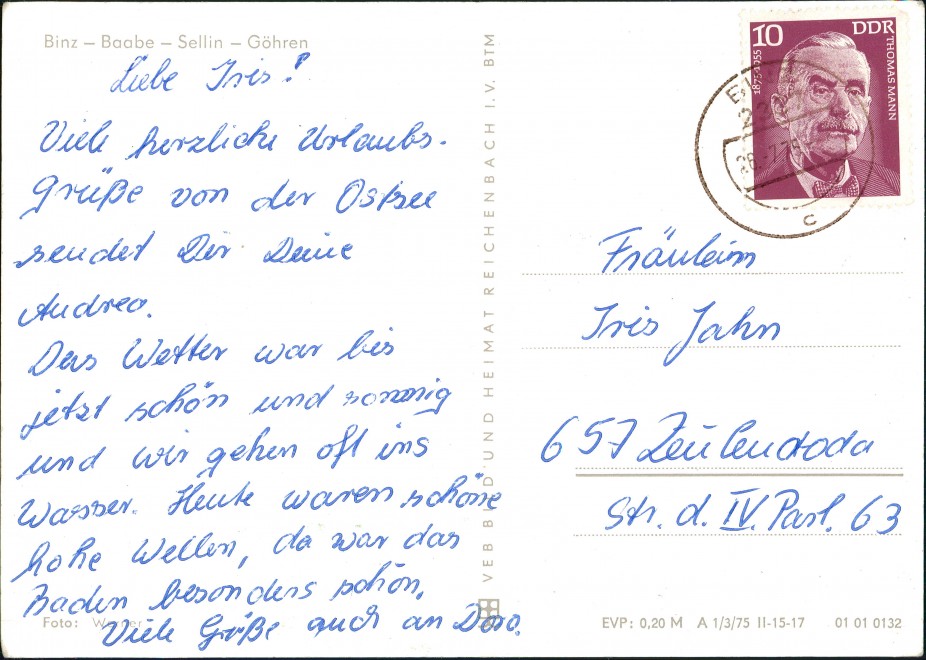 Binz – Baabe – Sellin – Göhren
Liebe Iris!
Viele herzliche Urlaubs-
Grüße von der Ostsee
sendet Dir Deine
Andrea.
Das Wetter war bis
jetzt schön und sonnig
und wir gehen oft ins
Wasser. Heute waren schöne
hohe Wellen, da war das
Baden besonders schön.
Viele Grüße auch an Doro.
Foto:
VEB BILD UND HEIMAT REICHENBACH I. V. BTM
10
DDR
1875-1955
THOMAS MANN
C
Fräulein
Iris Jahn
657 Zeulenroda
Str. d. IV. Parl. 63
EVP: 0,20 M A 1/3/75 II-15-17 01 01 0132